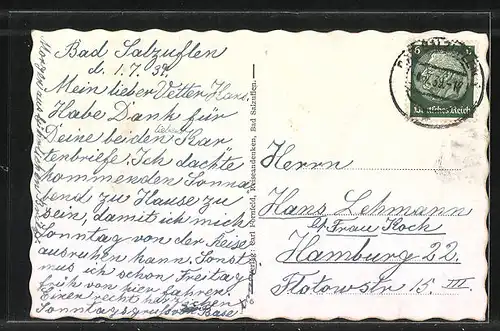 Bad Salzuflen
d. 1.7.34.
Mein lieber Vetter Hans.
Habe Dank für
Deine beiden lieben Kar
tenbriefe. Ich dachte
kommenden Sonna
bend zu Hause zu
sein, damit ich mich
Sonntag von der Reise
ausruhen kann. Sonst
mus ich schon Freitag
früh von hier fahren.
Einen recht herzlichen
Sonntagsgruß Base
Verlag: Carl Fornfeld, Reiseandenken, Bad Salzuflen.
6
Deutsches Reich
Herrn
Hans Lehmann
b/ Frau Koch
Hamburg 22.
Flotowstr 15. III.